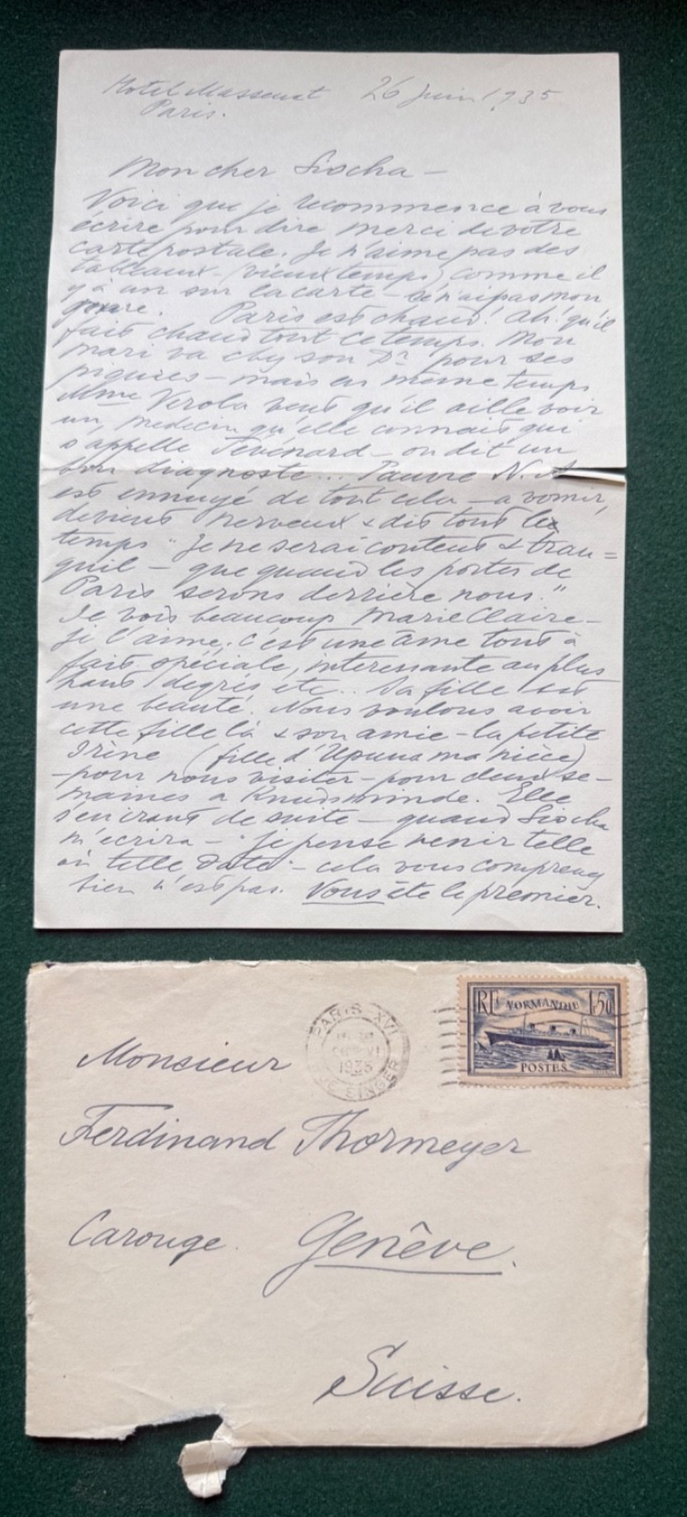 Hotel Massenet 26 juin 1935
Paris.
Mon cher Siocha —
Voici que je recommence à vous
écrire pour dire merci de votre
carte postale. Je n'aime pas des
tableaux vieux temps, comme il
y a un sur la carte — pas mon
genre. Paris est chaud! Ah! qu'il
fait chaud tout ce temps. Mon
mari va chez son Dr pour ses
piqures — mais en même temps
Mme Verola veut qu'il aille voir
un médecin qu'elle connait qui
s'appelle Tévénard — on dit un
bon diagnoste... Pauvre N. A
est ennuyé de tout cela — a vomir,
devient nerveux & dit tout le
temps "Je ne serai content & tran=
quil — que quand les portes de
Paris serons derrière nous."
Je vois beaucoup Marie Claire —
je l'aime, c'est une âme tout à
fait spéciale, interessante au plus
haut degrés etc.. Sa fille est
une beauté. Nous voulons avoir
cette fille là & son amie — la petite
Irène (fille d' ma nièce)
— pour nous visiter — pour deux se-
maines a . Elle
de suite — quand Siocha
m'écrira — "je pense venir telle
ou telle date" — cela vous comprenez
bien n'est pas. Vous ête le premier.
PARIS XVI
1935
RUE SINGER
RF NORMANDIE 1,50
POSTES
Monsieur
Ferdinand Thormeyer
Carouge. Genève.
Suisse.